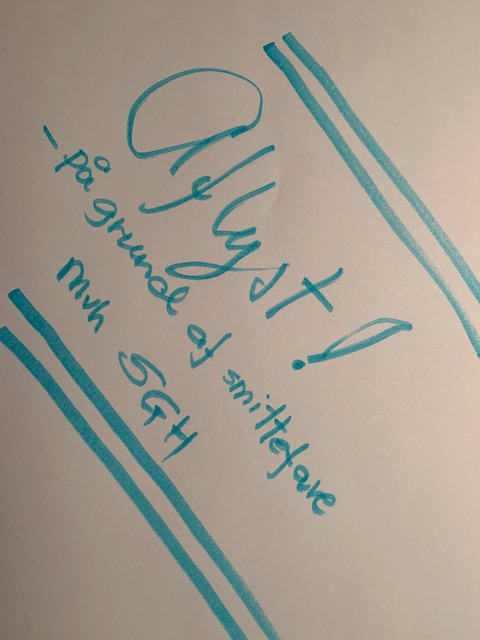 Aflyst!
- på grund af smittefare
mvh SGH